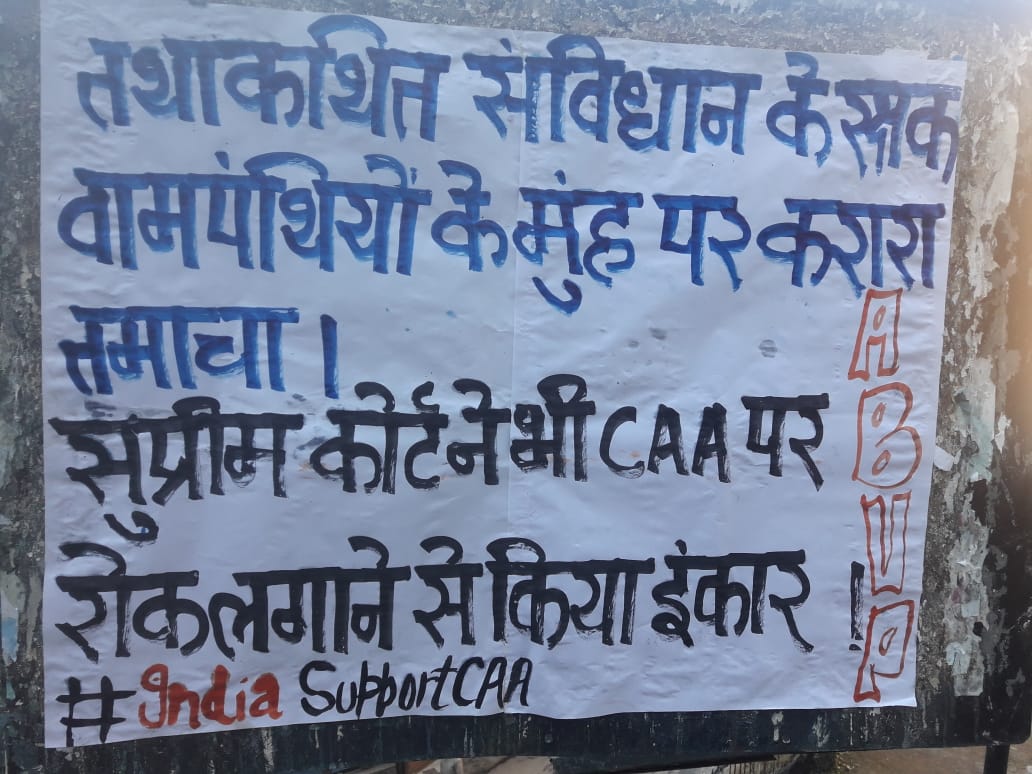 तथाकथित संविधान के रक्षक
वामपंथियों के मुंह पर करारा
तमाचा ।
सुप्रीम कोर्ट ने भी CAA पर
रोक लगाने से किया इंकार !
#India SupportCAA
ABVP